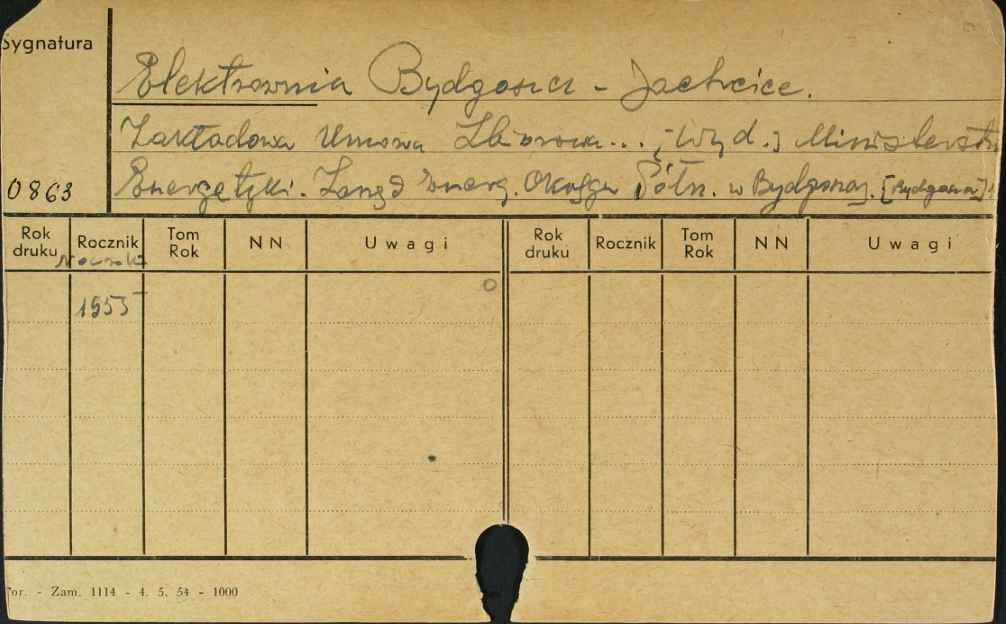 Sygnatura
Elektrownia Bydgoszcz - Jachcice.
Zakładowa Umowa Zbiorowa... [Wyd.] Ministerstw
0863
Energetyki. Zarząd Energ. Okręgu Półn. w Bydgoszczy. [Bydgoszcz]
Rok druku Rocznik Tom Rok NN Uwagi Rok druku Rocznik Tom Rok NN Uwagi
1955
Tor. - Zam. 1114 - 4. 5. 54 - 1000